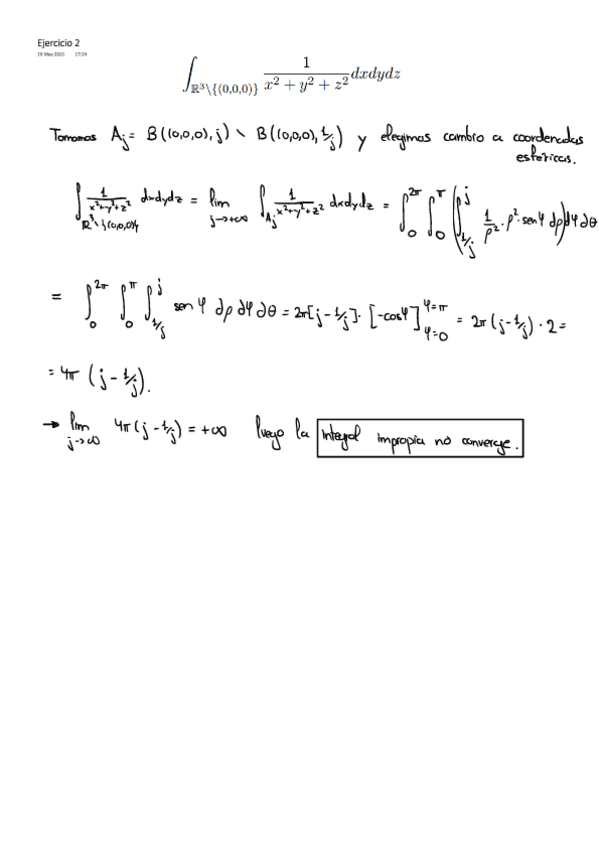 Ejercicio 2
19 May 2021 17:29
∫_{ℝ³\{(0,0,0)}} 1/(x² + y² + z²) dxdydz
Tomamos A_j = B((0,0,0), j) \ B((0,0,0), 1/j) y elegimos cambio a coordenadas
esféricas.
∫_{ℝ³\{(0,0,0)}} 1/(x²+y²+z²) dxdydz = lim_{j→+∞} ∫_{A_j} 1/(x²+y²+z²) dxdydz = ∫_0^{2π} ∫_0^π (∫_{1/j}^j 1/ρ² · ρ² · sen φ dρ) dφ dθ
= ∫_0^{2π} ∫_0^π ∫_{1/j}^j sen φ dρ dφ dθ = 2π[j - 1/j] · [-cosφ]_{φ=0}^{φ=π} = 2π(j - 1/j) · 2 =
= 4π (j - 1/j).
→ lim_{j→∞} 4π(j - 1/j) = +∞ luego la integral impropia no converge.